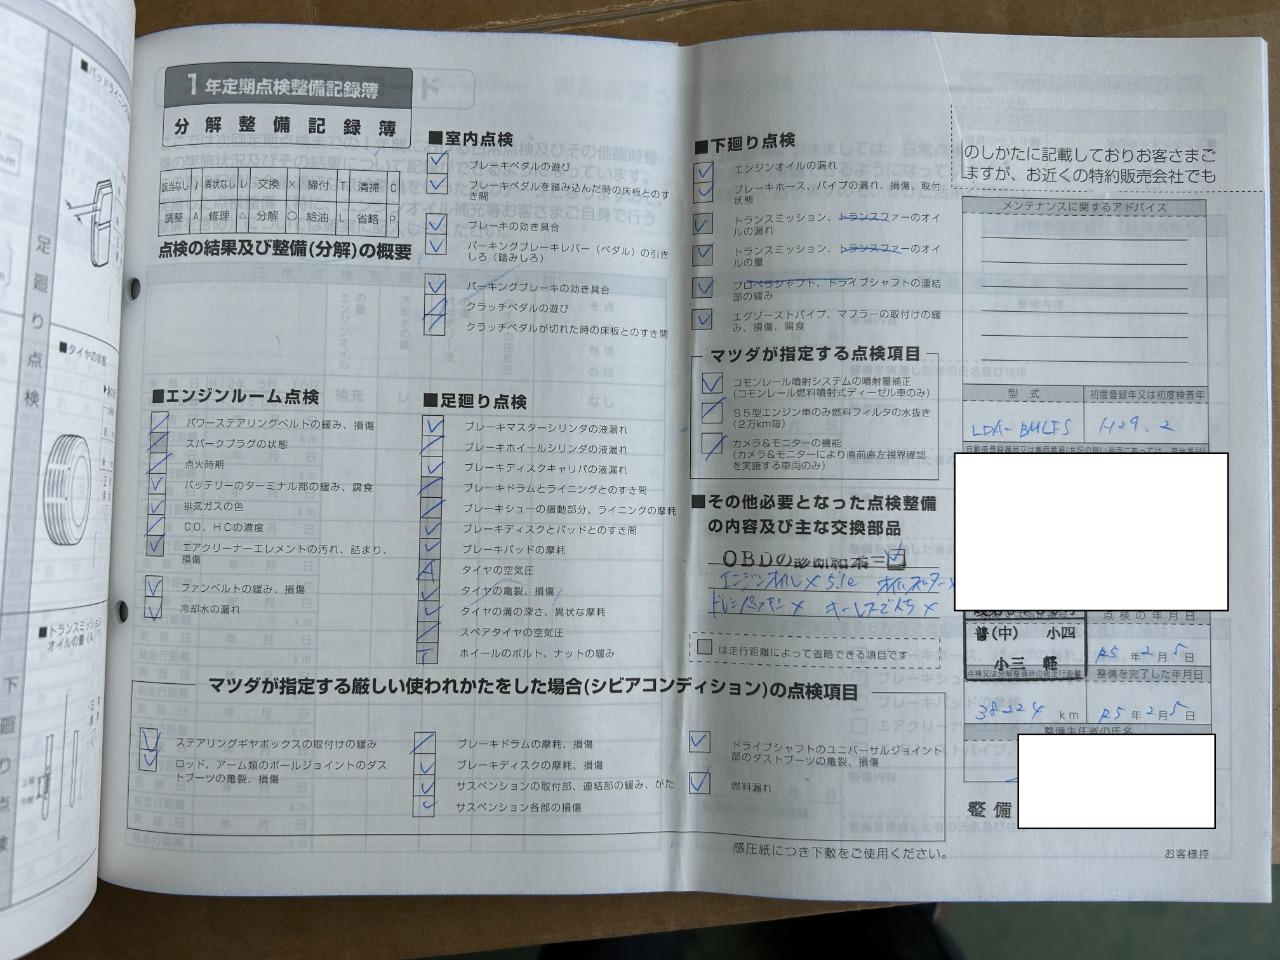 1年定期点検整備記録簿
分解整備記録簿
該当なし / 異状なし レ 交換 × 締付 T 清掃 C
調整 A 修理 △ 分解 ○ 給油 L 省略 P
点検の結果及び整備(分解)の概要
■エンジンルーム点検
パワーステアリングベルトの緩み、損傷
スパークプラグの状態
点火時期
バッテリーのターミナル部の緩み、腐食
排気ガスの色
CO、HCの濃度
エアクリーナーエレメントの汚れ、詰まり、
損傷
ファンベルトの緩み、損傷
冷却水の漏れ
■室内点検
ブレーキペダルの遊び
ブレーキペダルを踏み込んだ時の床板とのす
き間
ブレーキの効き具合
パーキングブレーキレバー（ペダル）の引き
しろ（踏みしろ）
パーキングブレーキの効き具合
クラッチペダルの遊び
クラッチペダルが切れた時の床板とのすき間
■足廻り点検
ブレーキマスターシリンダの液漏れ
ブレーキホイールシリンダの液漏れ
ブレーキディスクキャリパの液漏れ
ブレーキドラムとライニングとのすき間
ブレーキシューの摺動部分、ライニングの摩耗
ブレーキディスクとパッドとのすき間
ブレーキパッドの摩耗
A タイヤの空気圧
タイヤの亀裂、損傷
タイヤの溝の深さ、異状な摩耗
スペアタイヤの空気圧
T ホイールのボルト、ナットの緩み
■下廻り点検
エンジンオイルの漏れ
ブレーキホース、パイプの漏れ、損傷、取付
状態
トランスミッション、トランスファーのオイ
ルの漏れ
トランスミッション、トランスファーのオイ
ルの量
プロペラシャフト、ドライブシャフトの連結
部の緩み
エグゾーストパイプ、マフラーの取付けの緩
み、損傷、腐食
マツダが指定する点検項目
コモンレール噴射システムの噴射量補正
(コモンレール燃料噴射式ディーゼル車のみ)
S5型エンジン車のみ燃料フィルタの水抜き
(2万km毎)
カメラ&モニターの機能
(カメラ&モニターにより直前直左視界確認
を実施する車両のみ)
■その他必要となった点検整備
の内容及び主な交換部品
OBDの診断結果=
エンジンオイル × 5.1ℓ
ドレンパッキン ×
は走行距離によって省略できる項目です
マツダが指定する厳しい使われかたをした場合(シビアコンディション)の点検項目
ステアリングギヤボックスの取付けの緩み
ロッド、アーム類のボールジョイントのダス
トブーツの亀裂、損傷
ブレーキドラムの摩耗、損傷
ブレーキディスクの摩耗、損傷
サスペンションの取付部、連結部の緩み、がた
サスペンション各部の損傷
ドライブシャフトのユニバーサルジョイント
部のダストブーツの亀裂、損傷
燃料漏れ
感圧紙につき下敷をご使用ください。
のしかたに記載しておりお客さまご
ますが、お近くの特約販売会社でも
メンテナンスに関するアドバイス
型式 初度登録年又は初度検査年
LDA-BM2FS H29.2
点検の年月日
普(中) 小四
小三 軽
R5年2月5日
整備を完了した年月日
km R5年2月5日
整備主任者の氏名
整備
お客様控
足廻り点検
■タイヤの状態
■トランスミッション
オイルの量
下廻り点検